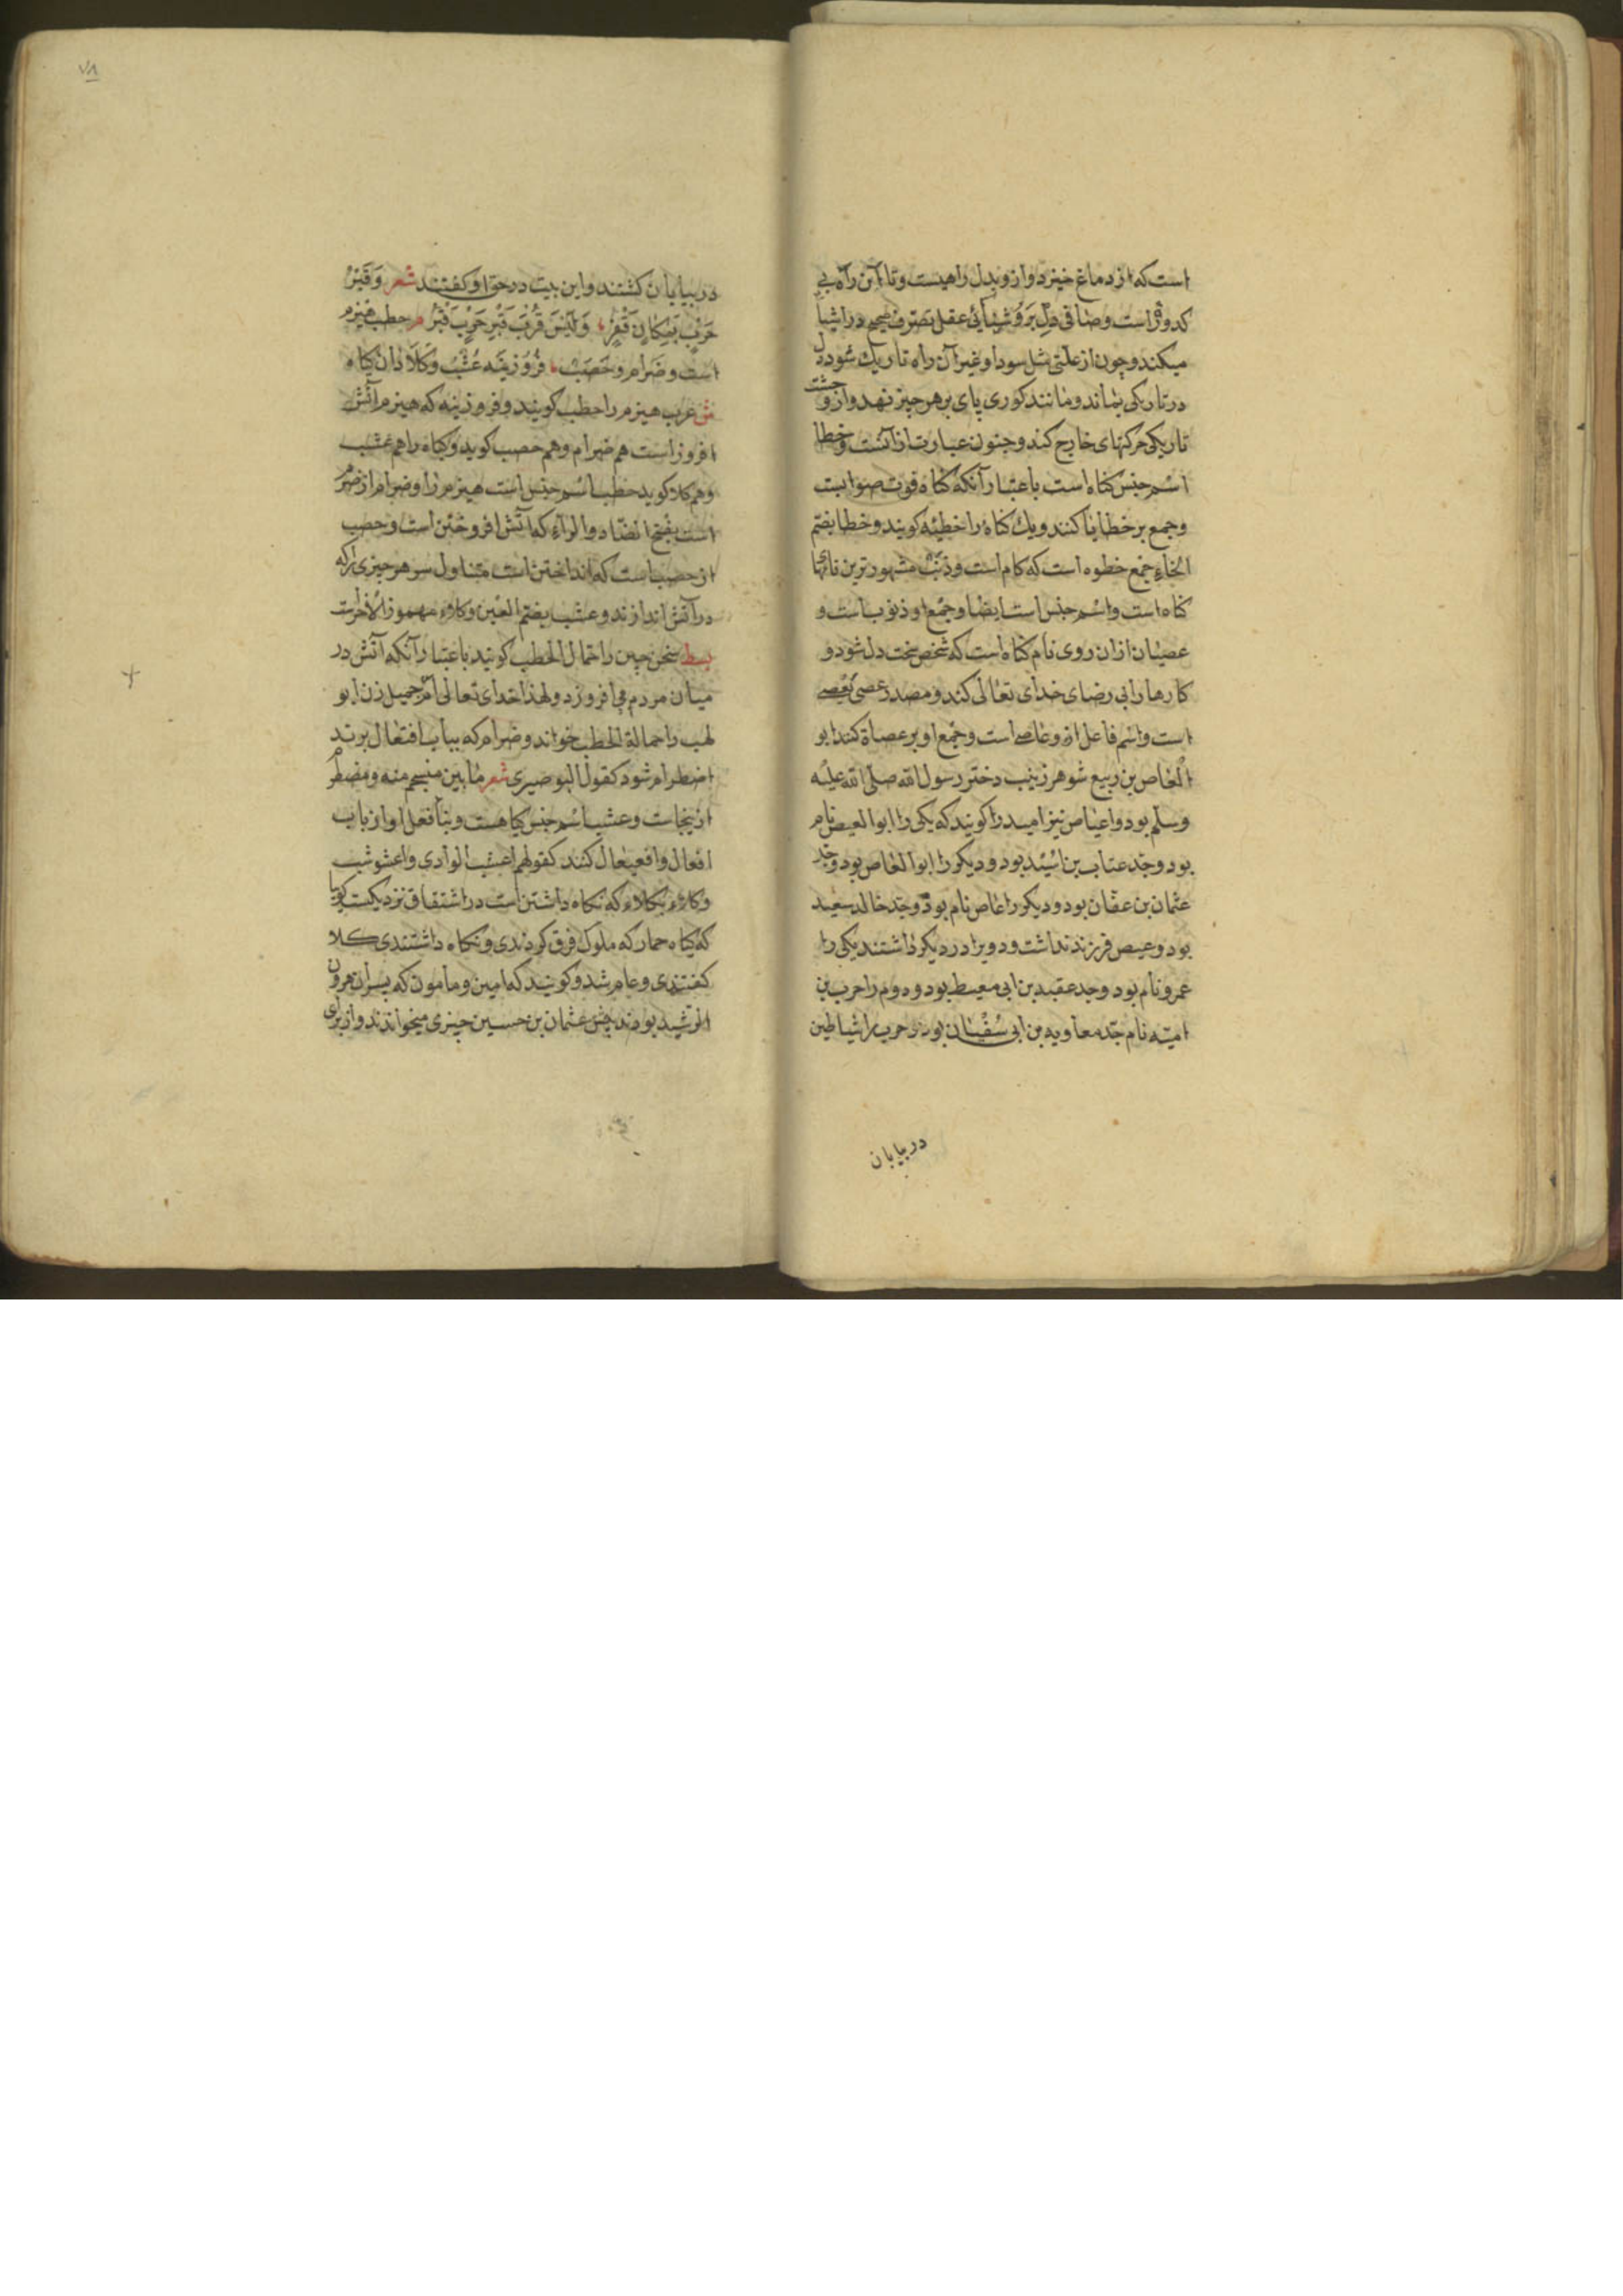 است که از دماغ خیزد و ازو بدل راهیست و تا آن راه بی
کدورت است و صافی دل بروشنائی عقل تصرف صحیح در اشیا
میکند و چون از علتی مثل سودا و غیر آن راه تاریک شود دل
در تاریکی بماند و مانند کوری پای بر هر چیز نهد و از وحشت
تاریکی حرکتهای خارج کند و جنون عبارت از آنست و خطا
اسم جنس کناه است باعتبار آنکه کناه فوت صوابست
و جمع بر خطایا کنند و یک کناه را خطیئه کویند و خطا بضم
الخاء جمع خطوه است که کام است و ذنب مشهورترین نامهای
کناه است و اسم جنس است ایضا و جمع او ذنوب است و
عصیان ازان روی نام کناه است که شخص سخت دل شود و
کارها را بی رضای خدای تعالی کند و مصدر عصی یعصی
است و اسم فاعل ازو عاصی است و جمع او بر عصاة کنند ابو
العاص بن ربیع شوهر زینب دختر رسول الله صلی الله علیه
وسلم بود و اعیاص نیز امیه را کویند که یکی را ابو العیص نام
بود و جد عتاب بن اسید بود و دیکر را ابو العاص بود و جد
عثمان بن عفان بود و دیکر را عاص نام بود و جد خالد سعید
بود و عیص فرزند نداشت و دو برادر دیکر داشتند یکی را
عمرو نام بود و جد عقبه بن ابی معیط بود و دوم را حرب بن
امیه نام جد معاویه بن ابی سفیان بود و حرب را شیاطین
در بیابان
۷۸
در بیابان کشتند و این بیت در حق او کفتند شعر وَقَبْرُ
حَرْبٍ بِمَكَانٍ قَفْرٍ وَلَيْسَ قُرْبَ قَبْرِ حَرْبٍ قَبْرُ م حطب هیزم
است و ضرام و حصب فروزینه عشب و کلا دان کیاه
ش عرب هیزم را حطب کویند و فروزینه که هیزم آتش
افروز است هم ضرام و هم حصب کوید و کیاه را هم عشب
و هم کلا کوید حطب اسم جنس است هیزم را و ضرام از ضرم
است بفتح الضاد و الراء که آتش افروختن است و حصب
از حصب است که انداختن است متناول سو هر چیزی را که
در آتش اندازند و عشب بضم العین و کلاء مهموز الآخرست
بسط سخن چین را حمال الحطب کویند باعتبار آنکه آتش در
میان مردم می افروزد و لهذا خدای تعالی ام جمیل زن ابو
لهب را حمالة الحطب خواند و ضرام که بباب افتعال برند
اضطرام شود کقول البوصیری شعر ما بین منسجم منه و مضطرم
ازینجاست و عشب اسم جنس کیاهست و بنا فعل او از باب
افعال و افعیعال کنند کقولهم اعشب الوادی و اعشوشب
و کلاء بکلاء که نکاه داشتن است در اشتقاق نزدیکست کویا
که کیاه حمار که ملوک فرق کردندی و نکاه داشتندی کلا
کفتندی و عام شد و کویند که امین و مامون که پسران هرون
الرشید بودند پیش عثمان بن حسین چیزی میخواندند و از برای